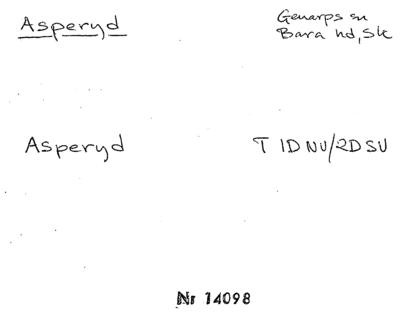 Asperyd
Genarps sn
Bara hd, Sk
Asperyd
T 1D NV/2D SV
Nr 14098